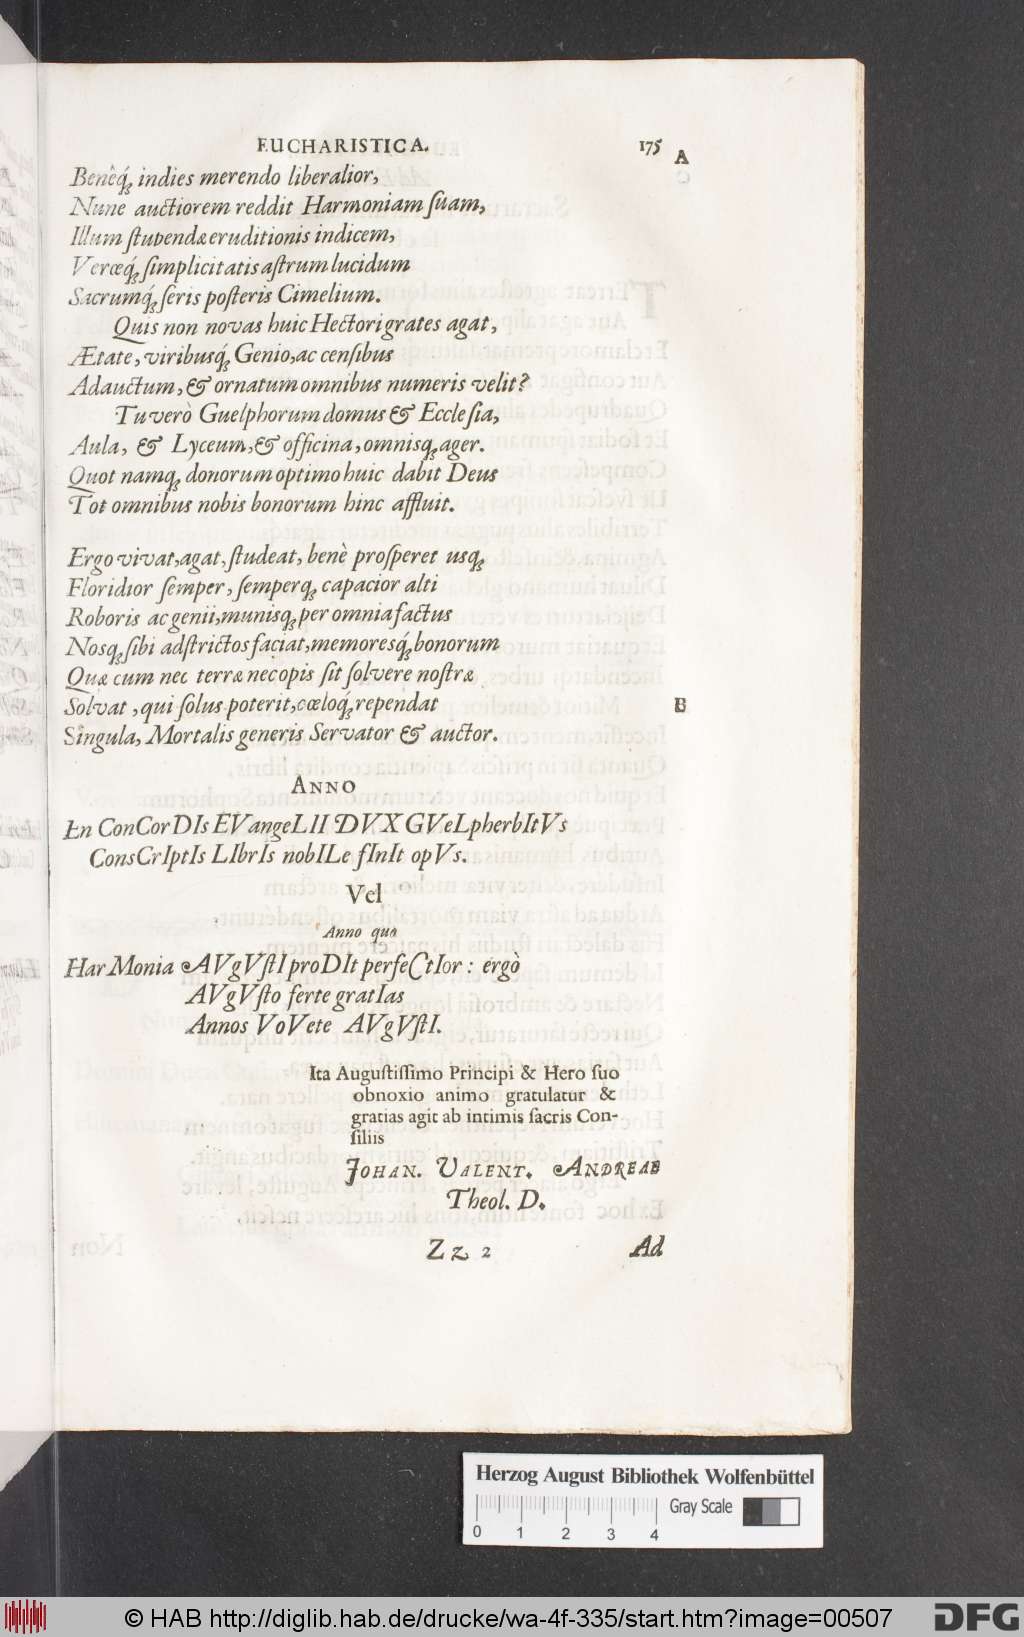 EUCHARISTICA. 175
A
Benêq́ꝫ indies merendo liberalior,
Nunc auctiorem reddit Harmoniam ſuam,
Illum ſtupendæ eruditionis indicem,
Veræq́ꝫ ſimplicitatis aſtrum lucidum
Sacrumq́ꝫ ſeris poſteris Cimelium.
Quis non novas huic Hectori grates agat,
Ætate, viribusq́ꝫ Genio, ac cenſibus
Adauctum, & ornatum omnibus numeris velit?
Tu verò Guelphorum domus & Eccleſia,
Aula, & Lyceum, & officina, omnisqꝫ ager.
Quot namqꝫ donorum optimo huic dabit Deus
Tot omnibus nobis bonorum hinc affluit.
Ergo vivat, agat, ſtudeat, benè proſperet usqꝫ
Floridior ſemper, ſemperqꝫ capacior alti
Roboris ac genii, munisqꝫ per omnia factus
Nosqꝫ ſibi adſtrictos faciat, memoresq́ꝫ bonorum
Quæ cum nec terræ nec opis ſit ſolvere noſtræ
Solvat, qui ſolus poterit, cœloq́ꝫ rependat
B
Singula, Mortalis generis Servator & auctor.
ANNO
En ConCorDIs EVangeLII DVX GVeLpherbItVs
ConsCrIptIs LIbrIs nobILe fInIt opVs.
Vel
Anno quo
HarMonia AVgVſtI proDIt perfeCtIor: ergò
AVgVſto ferte gratIas
Annos VoVete AVgVſtI.
Ita Auguſtiſſimo Principi & Hero ſuo
obnoxio animo gratulatur &
gratias agit ab intimis ſacris Con-
ſiliis
JOHAN. VALENT. ANDREAE
Theol. D.
Zz 2 Ad
Herzog August Bibliothek Wolfenbüttel
Gray Scale
0 1 2 3 4
© HAB http://diglib.hab.de/drucke/wa-4f-335/start.htm?image=00507 DFG